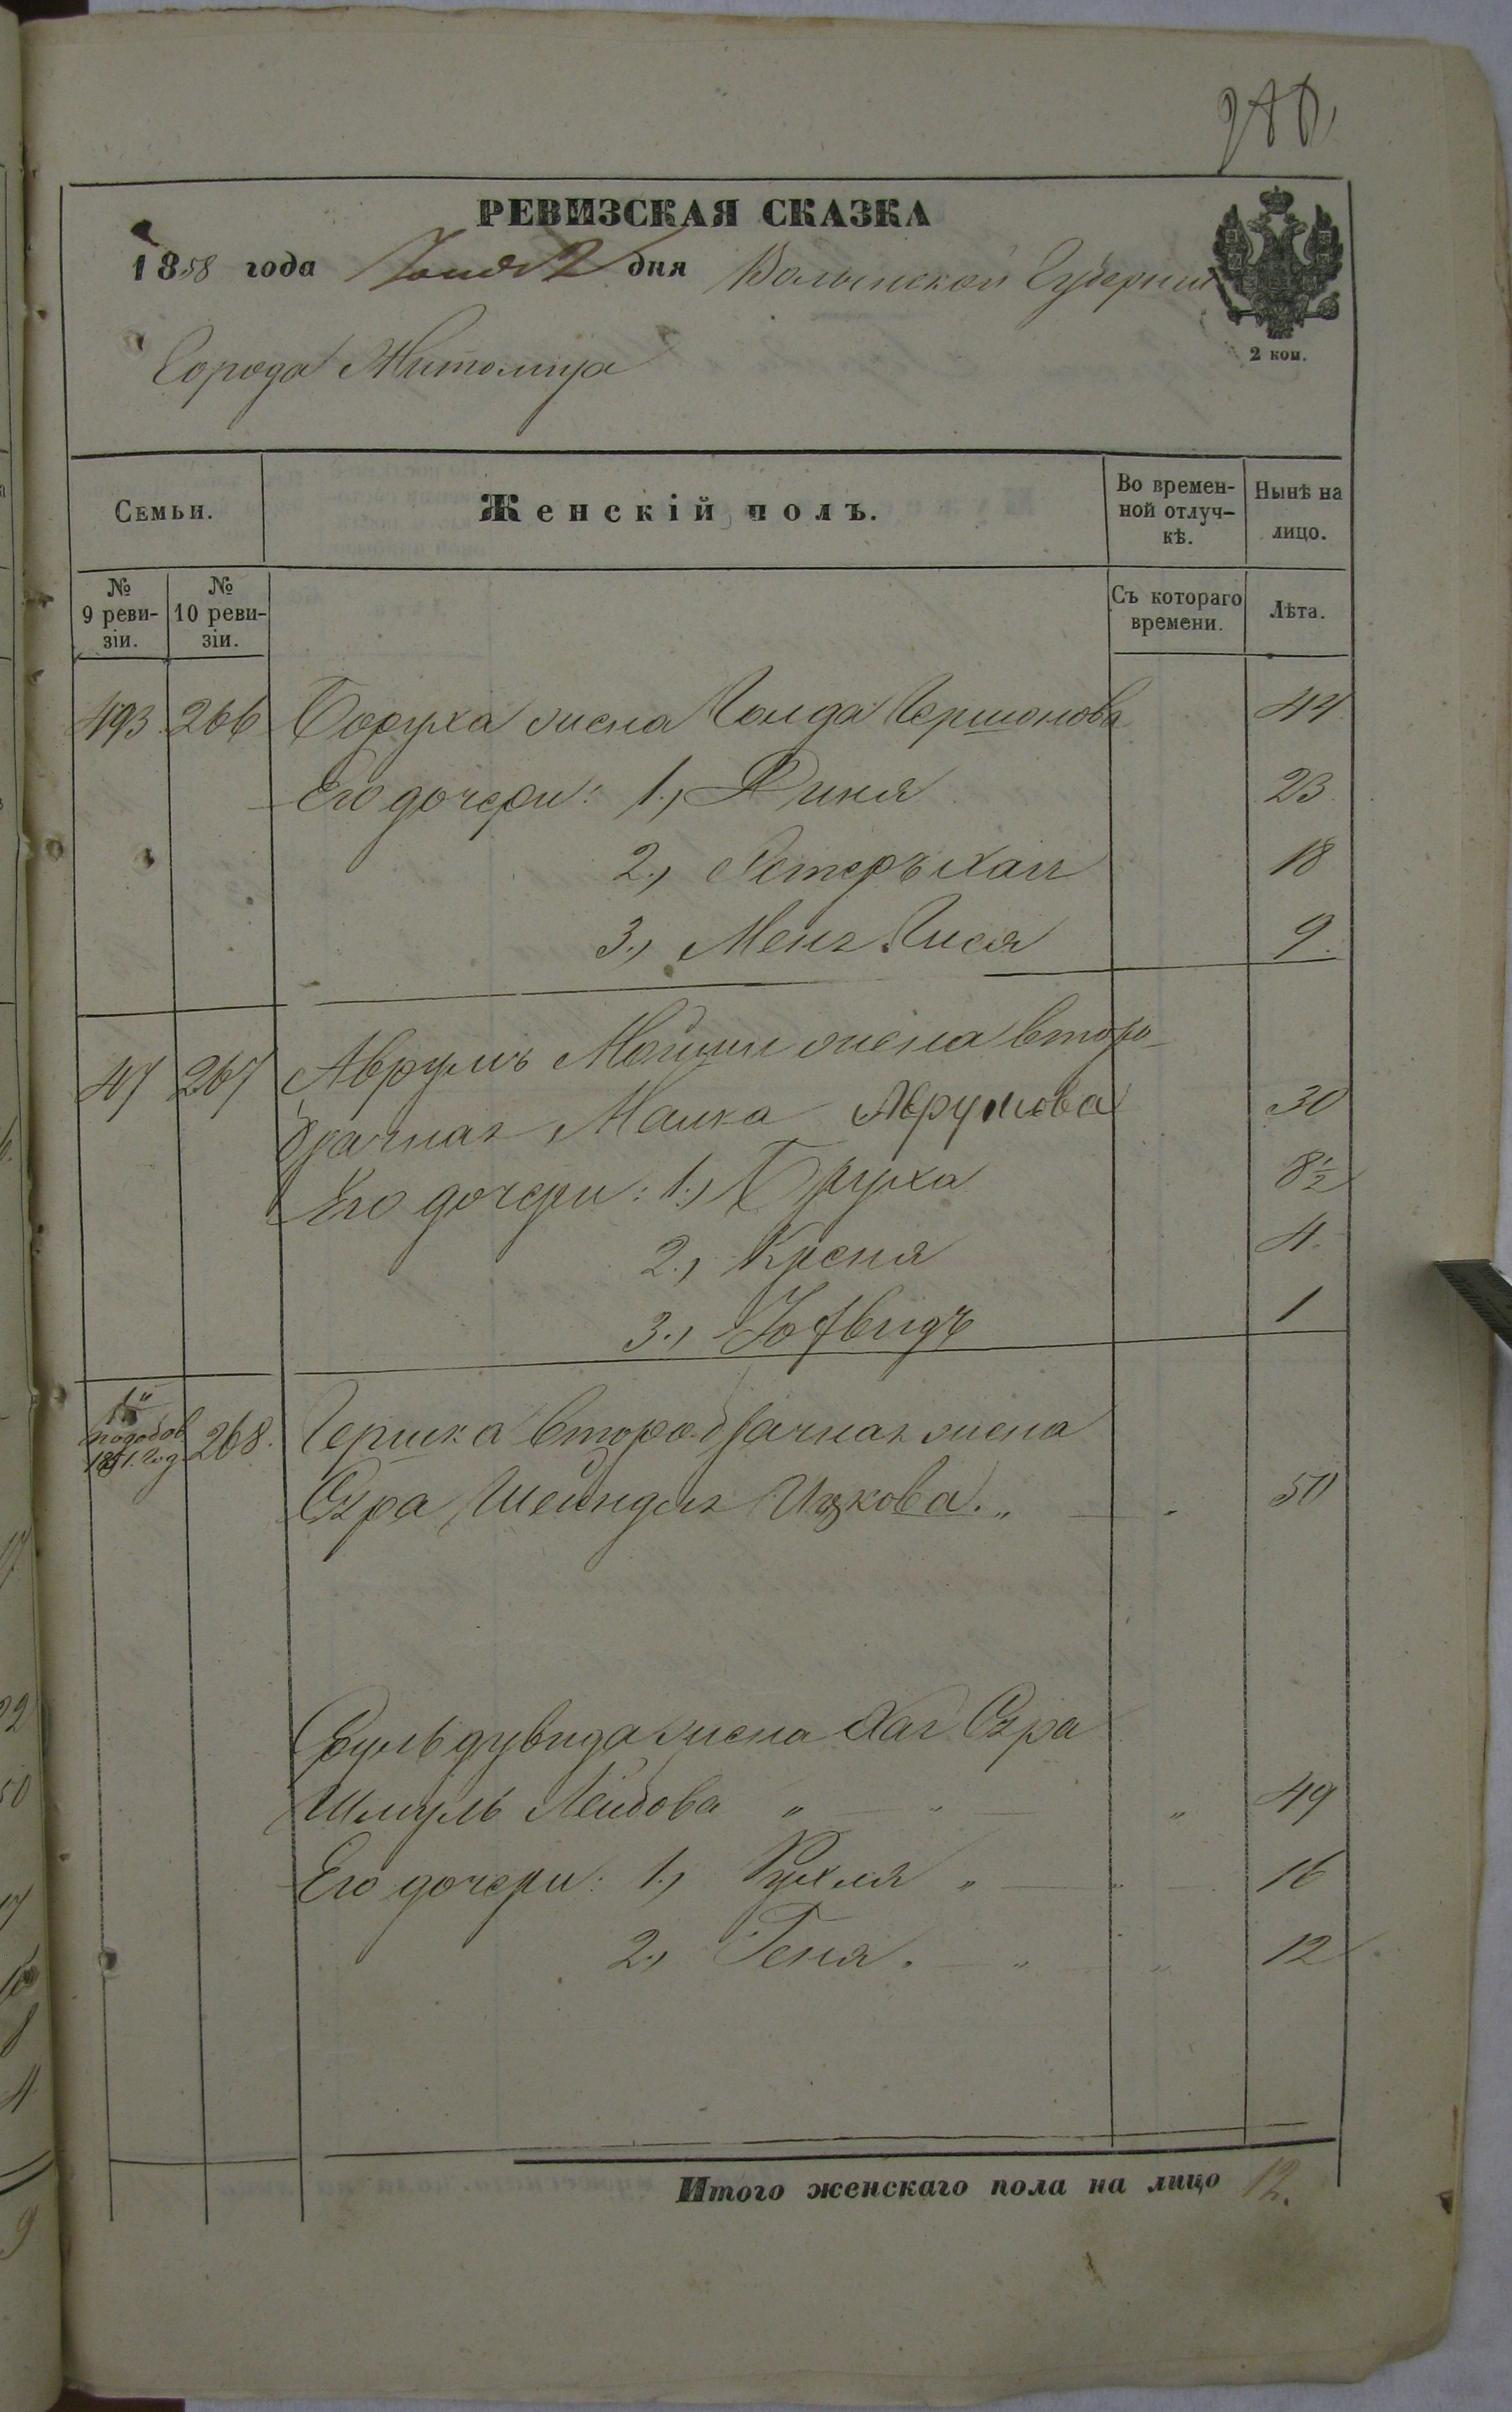 РЕВИЗСКАЯ СКАЗКА
1858 года Юня 2 дня Волынской Губернии
2 коп.
Города Житомира
Семьи.
Женскій полъ.
Во времен-
ной отлуч-
кѣ.
Нынѣ на
лицо.
№
9 реви-
зіи.
№
10 реви-
зіи.
Съ котораго
времени.
Лѣта.
493 266 Боруха жена Голда Гершонова 44
Его дочери: 1., Диня 23
2., Естеръ Хая 18
3., Меня Гися 9.
47 267 Аврумъ Мошки жена второ-
брачная Малка Аврумова 30
Его дочери: 1., Бруха 8½
2., Крейня 4.
3., 1
1851. год 268. Гершка второбрачная жена
Сура Шейндля Ицкова. „ 50
Сруль дувида жена Хая Сура
Шмуль Лейбова „ „ „ 49
Его дочери: 1., Рухля „ „ 16
2., Геня. „ „ 12
Итого женскаго пола на лицо 12.